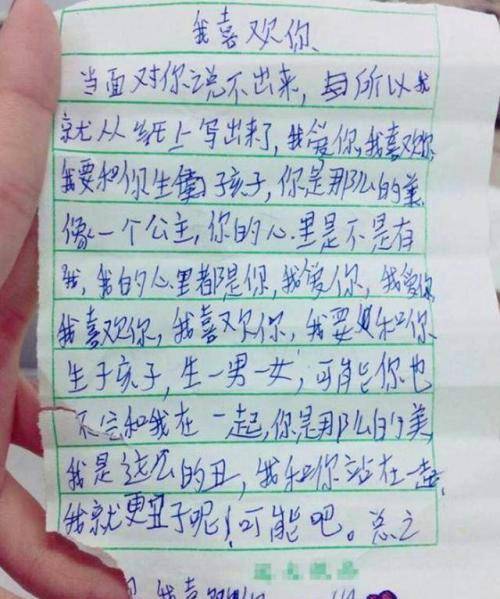 我喜欢你
当面对你说不出来，所以我
就从纸上写出来了，我爱你，我喜欢你
我要和你生孩子，你是那么的美
像一个公主，你的心里是不是有
我，我的心里都是你，我爱你，我爱你
我喜欢你，我喜欢你，我要和你
生子孩子，生一男一女，可能你也
不会和我在一起，你是那么的美
我是这么的丑，我和你站在一起
我就更丑了呢！可能吧。总之
我喜欢你